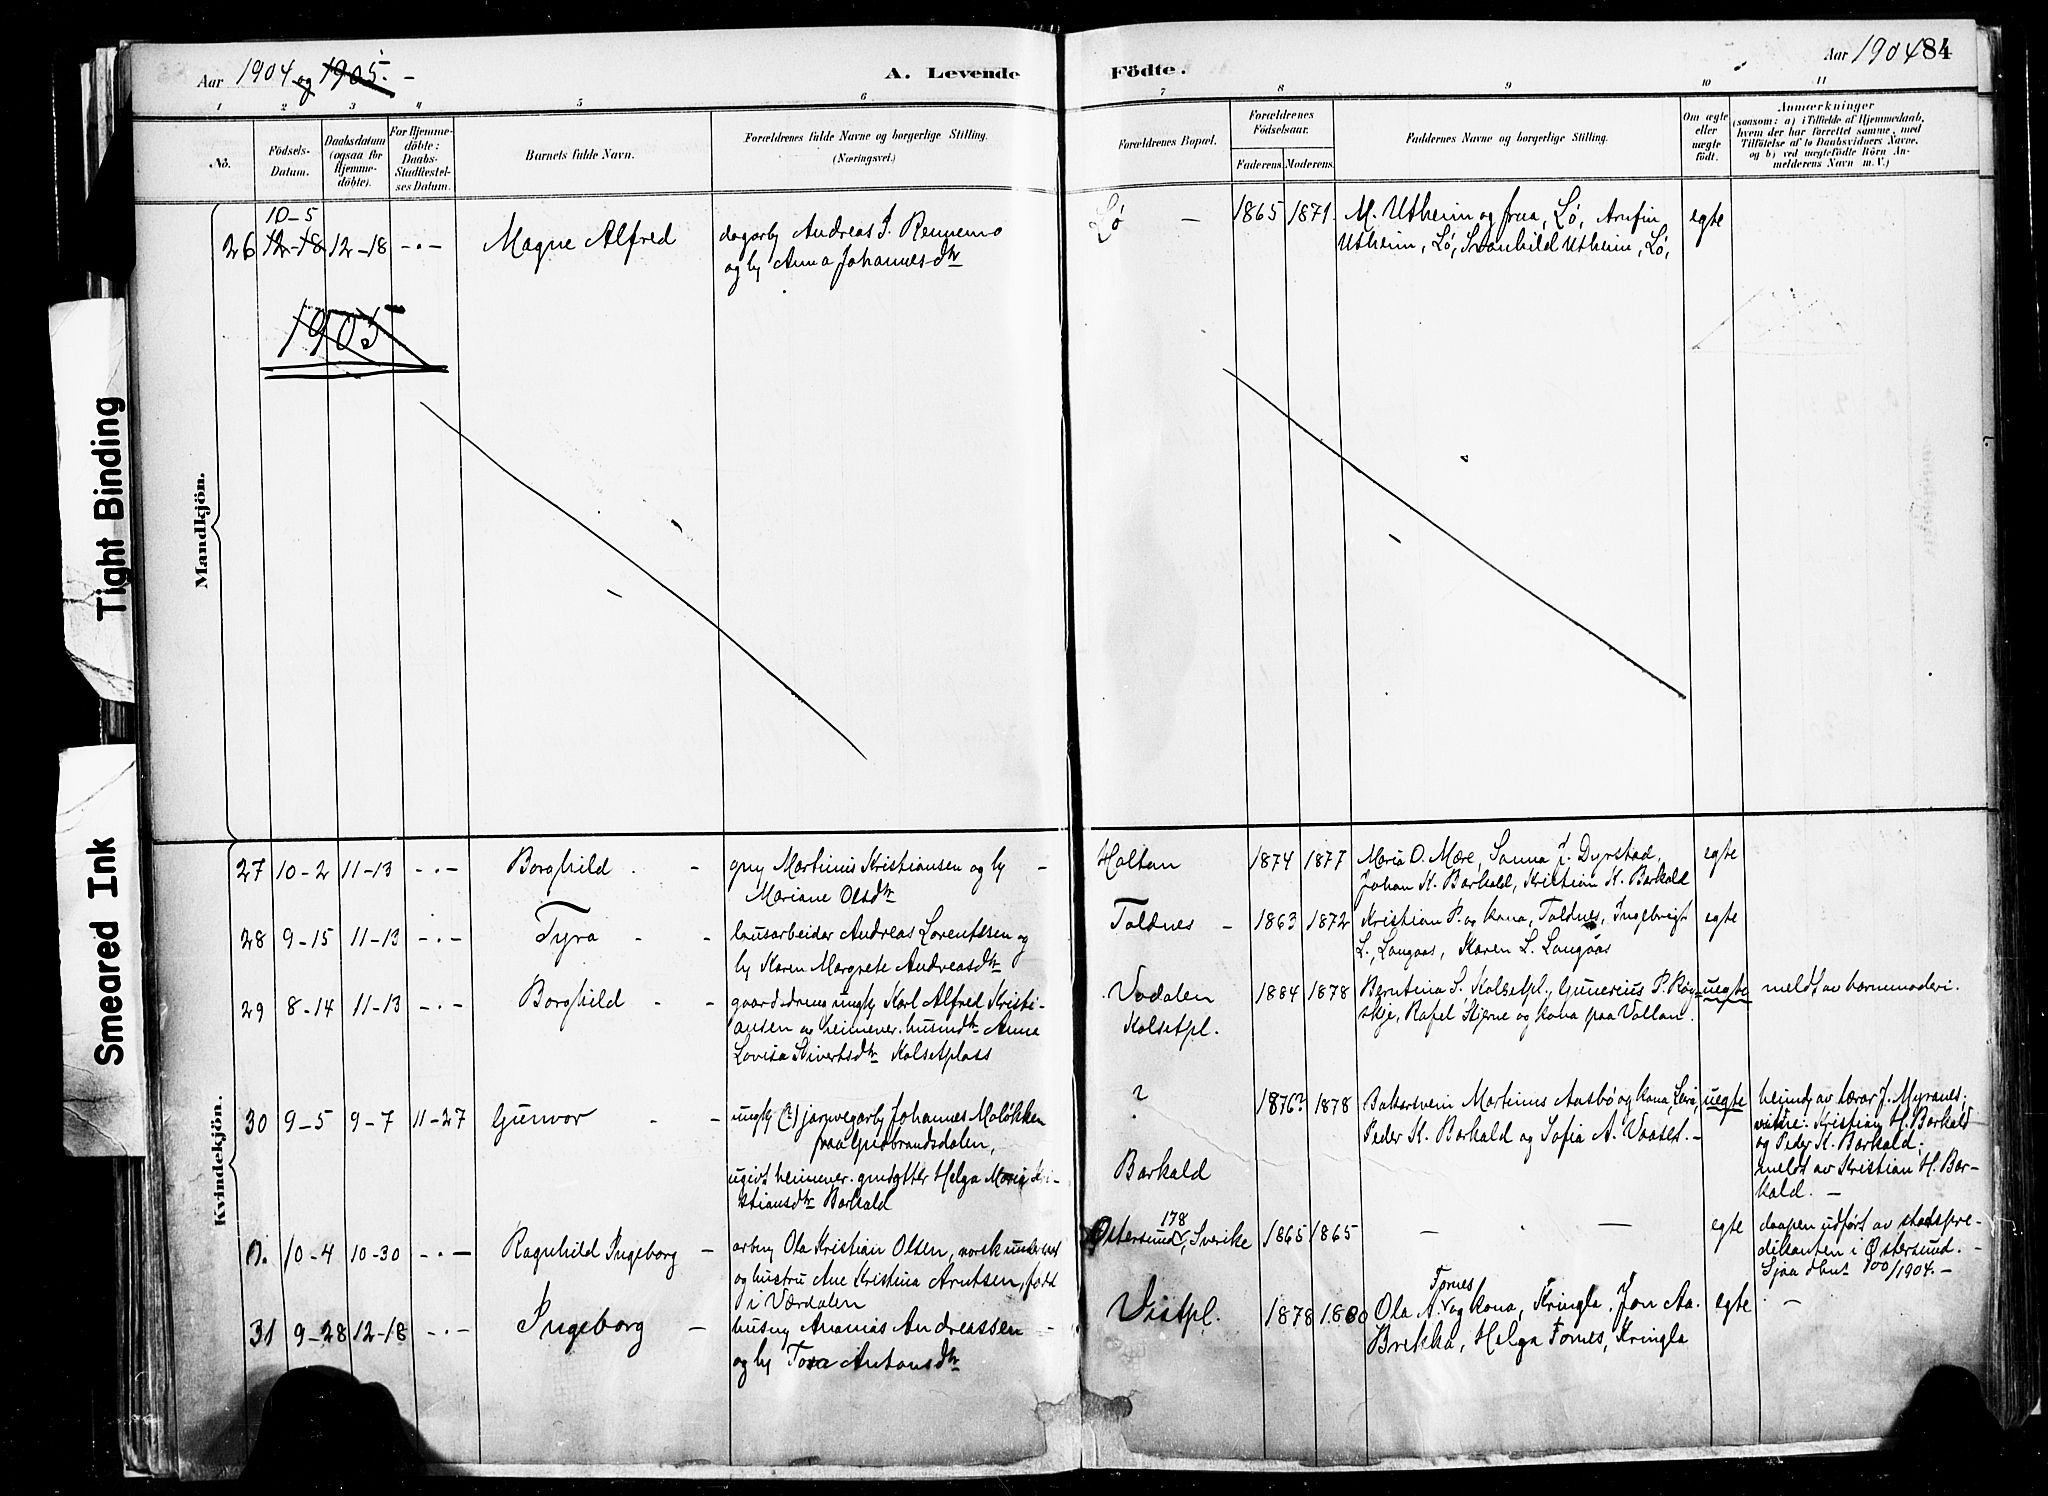 Aar 1904 og 1905. -
A. Levende
Födte.
Aar 1904 84
1 2 3 4 5 6 7 8 9 10 11
No.
Födsels-
Datum.
Daabsdatum
(ogsaa for
Hjemme-
döbte).
For Hjemme-
döbte:
Daabs-
Stadfæstel-
ses Datum.
Barnets fulde Navn.
Forældrenes fulde Navne og borgerlige Stilling.
(Næringsvei.)
Forældrenes Bopæl.
Forældrenes
Födselsaar.
Faderens. Moderens.
Faddernes Navne og borgerlige Stilling.
Om ægte
eller
uægte
födt.
Anmærkninger
(saasom: a) i Tilfælde af Hjemmedaab,
hvem der har forrettet samme, med
Tilföielse af to Daabsvidners Navne,
og b) ved uægtefödte Börn An-
melderens Navn m. V.)
Mandkjön.
10-5
26 12-18 12-18 -·- Magne Alfred
dagarb Andreas J. Rennemo
og hy Anna Johannesdtr
Lø - 1865 1871.
M. Utheim og frua, Lø, Arnfin
Utheim, Lø, Svanhild Utheim, Lø,
egte
1905
Kvindekjön.
27 10-2 11-13 -·- Borghild -
gmy Martinus Kristiansen og hy -
Mariane Olsdtr
Holtan 1874 1877
Maria O. Mære, Sanna J. Dyrstad,
Johan K. Barkald, Kristian K. Barkald
egte
28 9-15 11-13 -·- Tyra - -
lausarbeidar Andreas Lorentsen og
hy Karen Margrete Andreasdtr
Toldnes - 1863 1872
Kristian P. og kona, Toldnes, Ingebrigt
L., Langaas, Karen L. Langaas
egte
29 8-14 11-13 -·- Borghild - -
gaarddreng ungk Karl Alfred Kristi-
ansen og heimever. husmdtr Anna
Lovisa Sivertsdtr Kolsetplass
Vodalen
Kolsetpl.
1884 1878
Berntina S. Kolsetpl., Gunerius P. Røy-
skje, Rafel Stjerne og kona paa Vollan.
uegte
meldt av barnmoderi.
30 9-5 9-7 11-27 Gunvor - -
ungk (?) jarnvegarb Johannes Moløkken
fraa Gudbrandsdalen,
ugivt heimever. gmdotter Helga Maria Kri-
stiansdtr Barkald
?
Barkald
1876? 1878
Bakarsvein Martinus Aasbø og kona,
Peder K. Barkald og Sofia A. Vaaset. -
uegte
heimdp av lærar J. Myranes;
vitne: Kristian H. Barkald
og Peder K. Barkald.
meldt av Kristian H. Bar-
kald. -
0. 10-4 10-30 -·- Ragnhild Ingeborg -
arbmy Ola Kristian Olsen, norsk undersaat
og hustru Ane Kristina Arntsen, født
i Værdalen
178
Østersund, Sverike 1865 1865
- · -
egte
daapen udført av stadspre-
dikanten i Østersund. -
Sjaa dbut 100/1904. -
31 9-28 12-18 -·- Ingeborg -
husmy Ananias Andreassen -
og hy Tora Antonsdtr
Vistpl. 1878 1880
Fornes
Ola A. og kona, Kringla, Jon Aa.
Brekka, Helga Fornes, Kringla
egte
-
Tight Binding
Smeared Ink